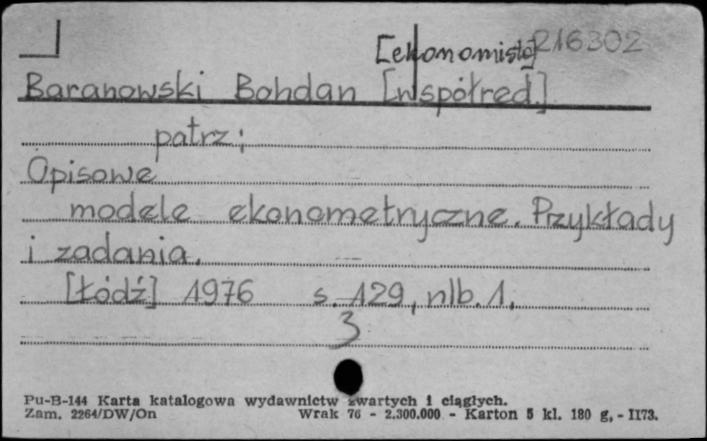 [ekonomista] R16302
Baranowski Bohdan [współred.]
patrz:
Opisowe
modele ekonometryczne. Przykłady
i zadania.
[Łódź] 1976 s. 129, nlb. 1.
3
Pu-B-144 Karta katalogowa wydawnictw zwartych i ciągłych.
Zam. 2264/DW/On Wrak 76 - 2.300.000 - Karton 5 kl. 180 g, - II73.